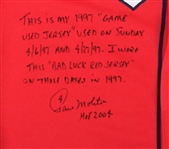 THIS IS MY 1997 "GAME
USED JERSEY" USED ON SUNDAY
4/6/97 AND 4/27/97. I WORE
THIS "BAD LUCK RED JERSEY"
ON THOSE DATES IN 1997.
Paul Molitor
HOF 2004